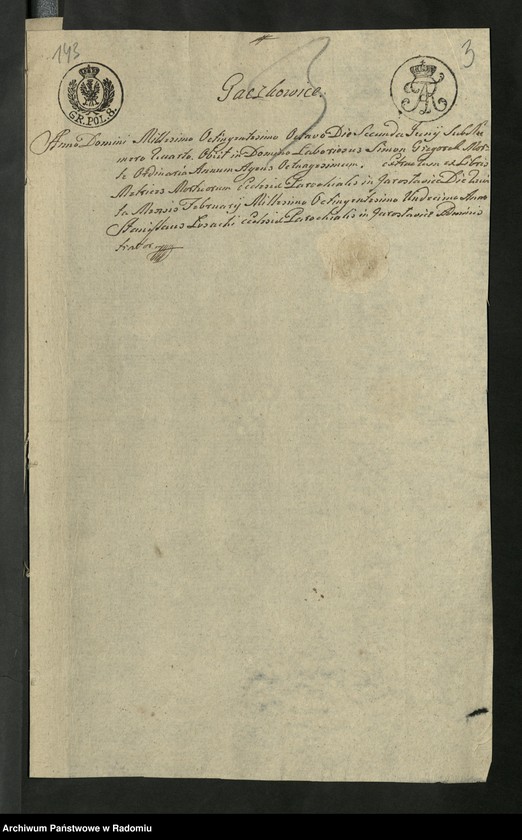 143
3
GR. POL. 8.
Gaczkowice.
Anno Domini Millesimo Octingentesimo Octavo Die Secunda Junij Sub Nu
mero Quarto. Obiit in Domino Laboriosus Simon Grzorek Mor
te Ordinaria Annum Agens Octuagesimum. Extractum ex Libris
Metrices Mortuorum Ecclesiæ Parochialis in Jarosławice Die
ta Mensis Februarij Millesimo Octingentesimo Undecimo Anno
Stanisłaus Ecclesiæ Parochialis in Jarosławice Adminis
trator
Archiwum Państwowe w Radomiu